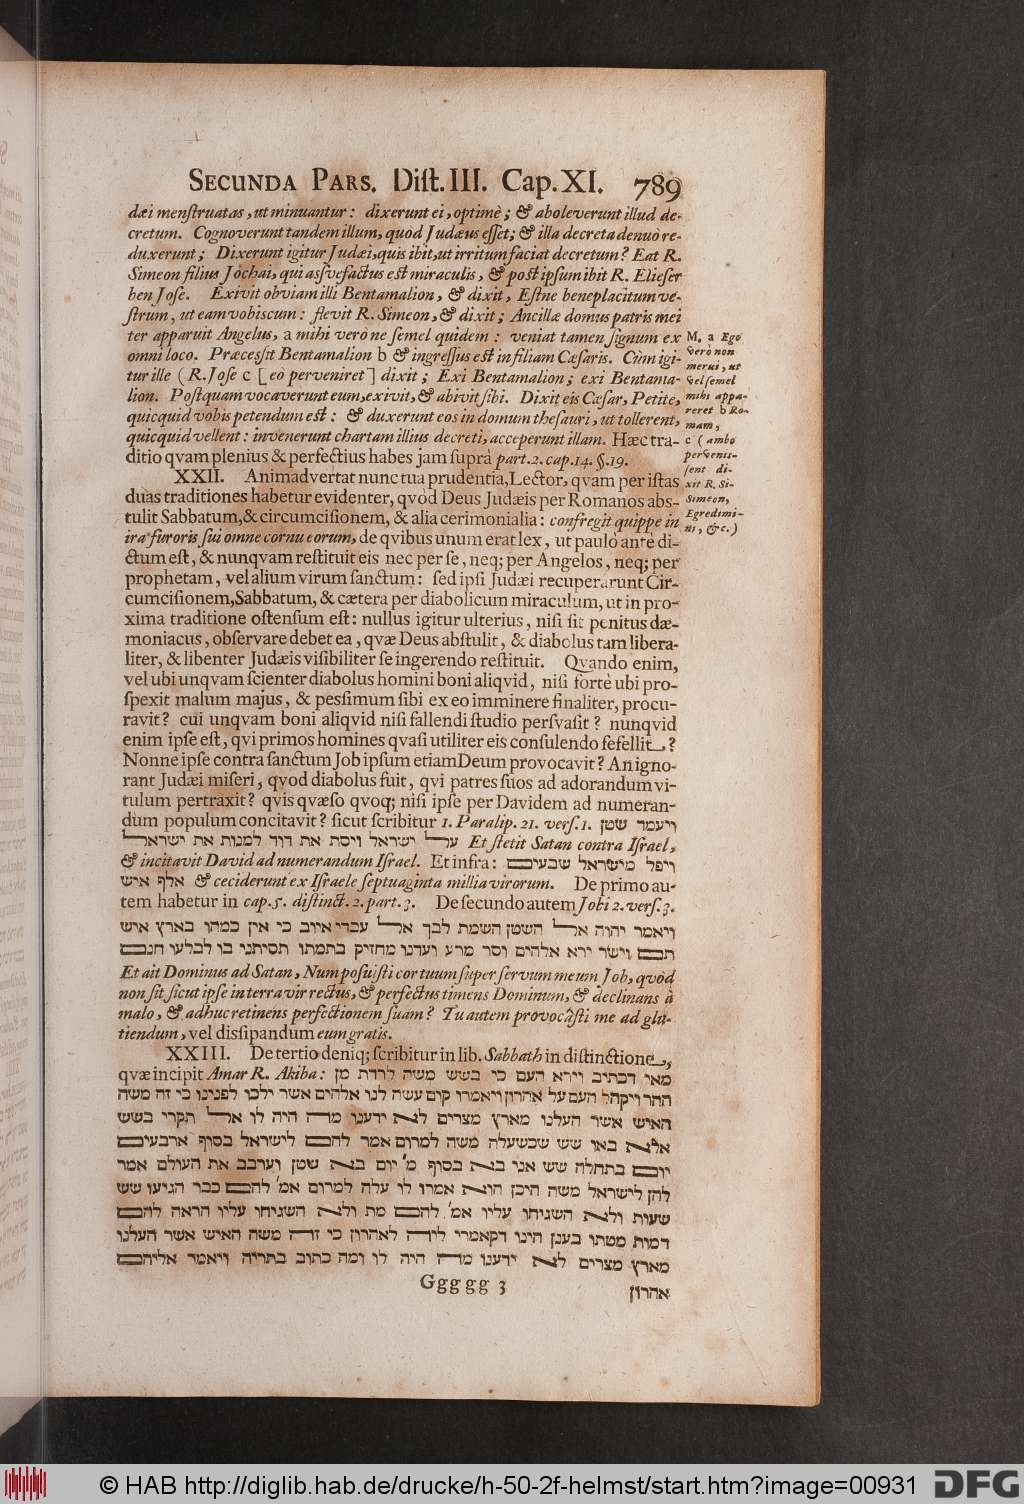 SECUNDA PARS. Diſt. III. Cap. XI. 789
dæi menſtruatas, ut minuantur: dixerunt ei, optimè; & aboleverunt illud de-
cretum. Cognoverunt tandem illum, quod Judæus eſſet; & illa decreta denuò re-
duxerunt; Dixerunt igitur Judæi, quis ibit, ut irritum faciat decretum? Eat R.
Simeon filius Jochai, qui aſſvefactus eſt miraculis, & poſt ipſum ibit R. Elieſer
ben Joſe. Exivit obviam illi Bentamalion, & dixit, Eſtne beneplacitum ve-
ſtrum, ut eam vobiscum: flevit R. Simeon, & dixit; Ancillæ domus patris mei
ter apparuit Angelus, a mihi verò ne ſemel quidem: veniat tamen ſignum ex
omni loco. Præceſſit Bentamalion b & ingreſſus eſt in filiam Cæſaris. Cùm igi-
tur ille (R. Joſe c [eò perveniret] dixit; Exi Bentamalion; exi Bentama-
lion. Poſtquam vocaverunt eum, exivit, & abivit ſibi. Dixit eis Cæſar, Petite,
quicquid vobis petendum eſt: & duxerunt eos in domum theſauri, ut tollerent,
quicquid vellent: invenerunt chartam illius decreti, acceperunt illam. Hæc tra-
ditio qvam plenius & perfectius habes jam ſuprà part. 2. cap. 14. §. 19.
M. a Ego
verò non
merui, ut
vel ſemel
mihi appa-
reret b Ro-
mam,
c (ambo
perveniſ-
ſent di-
xit R. Si-
Simeon,
Egredimi-
ni, &c.)
XXII. Animadvertat nunc tua prudentia, Lector, qvam per iſtas
duas traditiones habetur evidenter, qvòd Deus Judæis per Romanos abs-
tulit Sabbatum, & circumciſionem, & alia cerimonialia: confregit quippe in
ira furoris ſui omne cornu eorum, de qvibus unum erat lex, ut paulò antè di-
ctum eſt, & nunqvam reſtituit eis nec per ſe, neq; per Angelos, neq; per
prophetam, vel alium virum ſanctum: ſed ipſi Judæi recuperarunt Cir-
cumciſionem, Sabbatum, & cætera per diabolicum miraculum, ut in pro-
xima traditione oſtenſum eſt: nullus igitur ulterius, niſi ſit penitus dæ-
moniacus, obſervare debet ea, qvæ Deus abſtulit, & diabolus tam libera-
liter, & libenter Judæis viſibiliter ſe ingerendo reſtituit. Qvando enim,
vel ubi unqvam ſcienter diabolus homini boni aliqvid, niſi fortè ubi pro-
ſpexit malum majus, & peſſimum ſibi ex eo imminere finaliter, procu-
ravit? cui unqvam boni aliqvid niſi fallendi ſtudio perſvaſit? nunqvid
enim ipſe eſt, qvi primos homines qvaſi utiliter eis conſulendo fefellit?
Nonne ipſe contra ſanctum Job ipſum etiam Deum provocavit? An igno-
rant Judæi miſeri, qvod diabolus fuit, qvi patres ſuos ad adorandum vi-
tulum pertraxit? qvis qvæſo qvoq; niſi ipſe per Davidem ad numeran-
dum populum concitavit? ſicut ſcribitur 1. Paralip. 21. verſ. 1. ויעמד שטן
על ישראל ויסת את דוד למנות את ישראל Et ſtetit Satan contra Iſrael,
& incitavit David ad numerandum Iſrael. Et infra: ויפל מישראל שבעים
אלף איש & ceciderunt ex Iſraele ſeptuaginta millia virorum. De primo au-
tem habetur in cap. 5. diſtinct. 2. part. 3. De ſecundo autem Jobi 2. verſ. 3.
ויאמר יהוה אל השטן השמת לבך אל עבדי איוב כי אין כמהו בארץ איש
תם וישר ירא אלהים וסר מרע ועדנו מחזיק בתמתו תסיתני בו לבלעו חנם
Et ait Dominus ad Satan, Num poſuiſti cor tuum ſuper ſervum meum Job, qvòd
non ſit ſicut ipſe in terra vir rectus, & perfectus timens Dominum, & declinans à
malo, & adhuc retinens perfectionem ſuam? Tu autem provocâſti me ad glu-
tiendum, vel diſſipandum eum gratis.
XXIII. De tertio deniq; ſcribitur in lib. Sabbath in diſtinctione,
qvæ incipit Amar R. Akiba: מאי דכתיב וירא העם כי בשש משה לרדת מן
ההר ויקהל העם על אהרון ויאמרו קום עשה לנו אלהים אשר ילכו לפנינו כי זה משה
האיש אשר העלנו מארץ מצרים לא ידענו מה היה לו אל תקרי בשש
אלא באו שש שכשעלה משה למרום אמר להם לישראל בסוף ארבעים
יום בתחלה שש אני בא בסוף מ' יום בא שטן וערבב את העולם אמר
להן לישראל משה היכן הוא אמרו לו עלה למרום אמ' להם כבר הגיעו שש
שעות ולא השגיחו עליו אמ' להם מת ולא השגיחו עליו הראה להם
דמות מטתו בענן היינו דקאמרי ליה לאהרון כי זה משה האיש אשר העלנו
מארץ מצרים לא ידענו מה היה לו ומה כתוב בתריה ויאמר אליהם
Ggg gg 3 אהרון
© HAB http://diglib.hab.de/drucke/h-50-2f-helmst/start.htm?image=00931 DFG